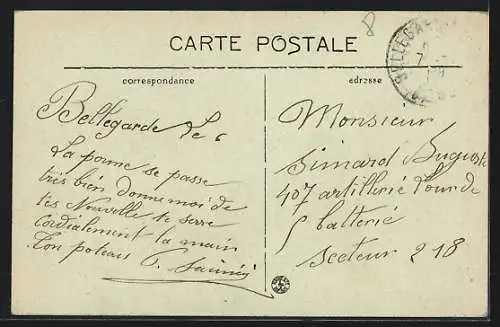 8
CARTE POSTALE
correspondance
adresse
BELLEGARDE
Bellegarde le 6
La permе se passe
très bien donne moi de
tes Nouvelle te serre
cordialement la main
Ton poteau
Monsieur
Simard Auguste
407 artillerie Lourde
5 batterie
secteur 218